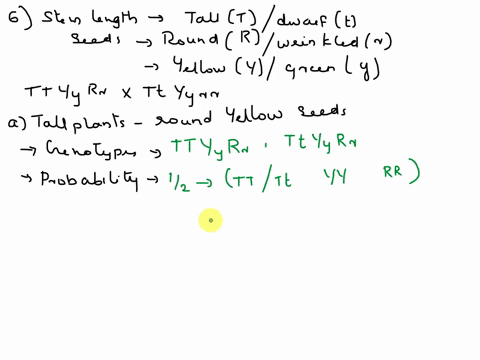 6) Stem length → Tall (T) / dwarf (t)
Seeds → Round (R) / wrinkled (r)
→ Yellow (Y) / green (y)
Tt Yy Rr × Tt Yy rr
a) Tall plants - round yellow seeds
→ Genotypes → TT Yy Rr , Tt Yy Rr
→ Probability → 1/2 → (TT / Tt YY RR)